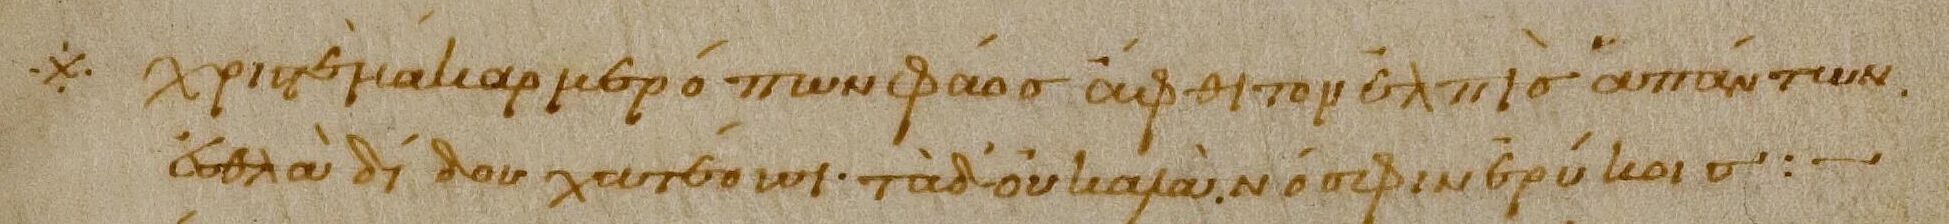 ※ χριστὲ μάκαρ μερόπων φάος ἄφθιτον ἐλπὶς ἁπάντων.
ἐσθλὰ δίδου χατέουσι· τὰ δ' οὐ καλὰ νόσφιν ἐρύκοις :~